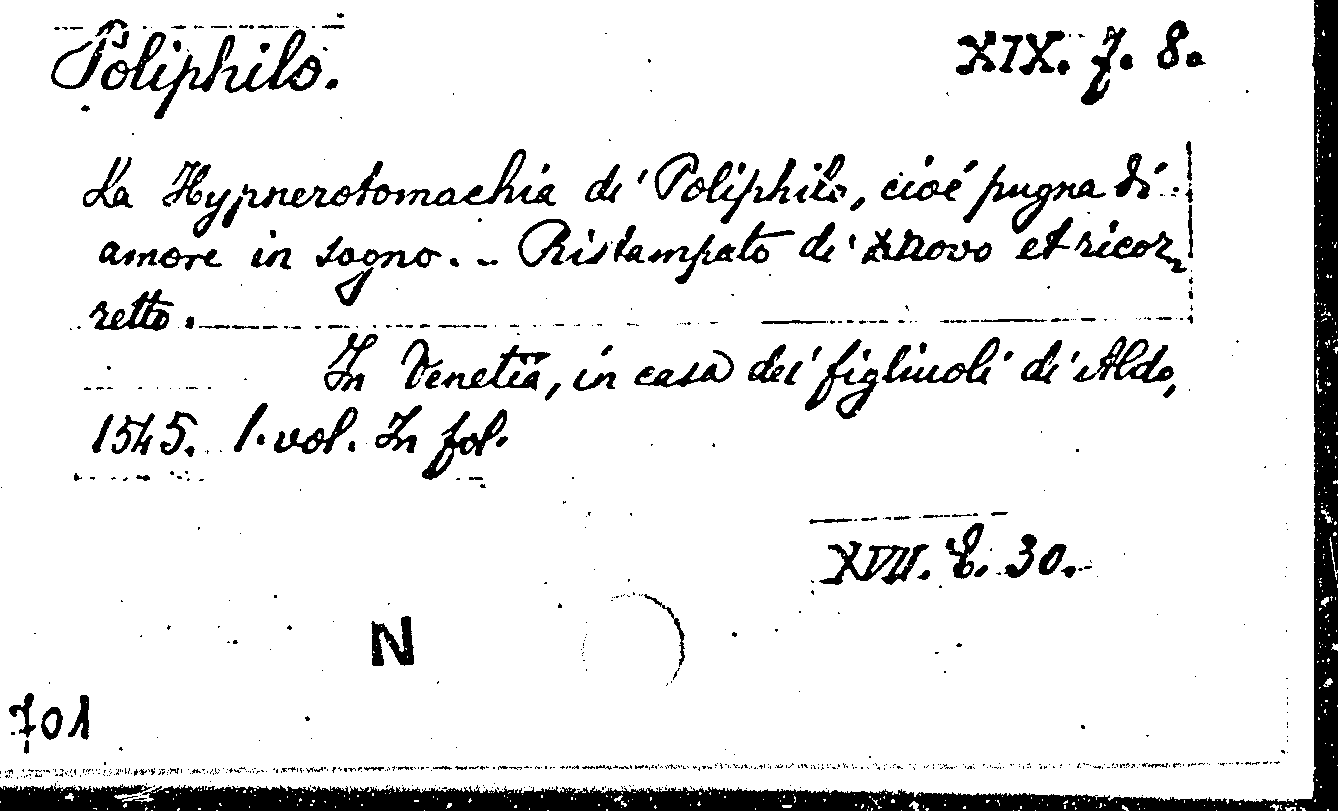 Poliphilo.
XIX. f. 8.
La Hypnerotomachia di Poliphilo, cioé pugna di
amore in sogno. - Ristampato di novo et ricor-
retto.
In Venetia, in casa dei figliuoli di Aldo,
1545. 1. vol. In fol.
XVII. E. 30.
N
701